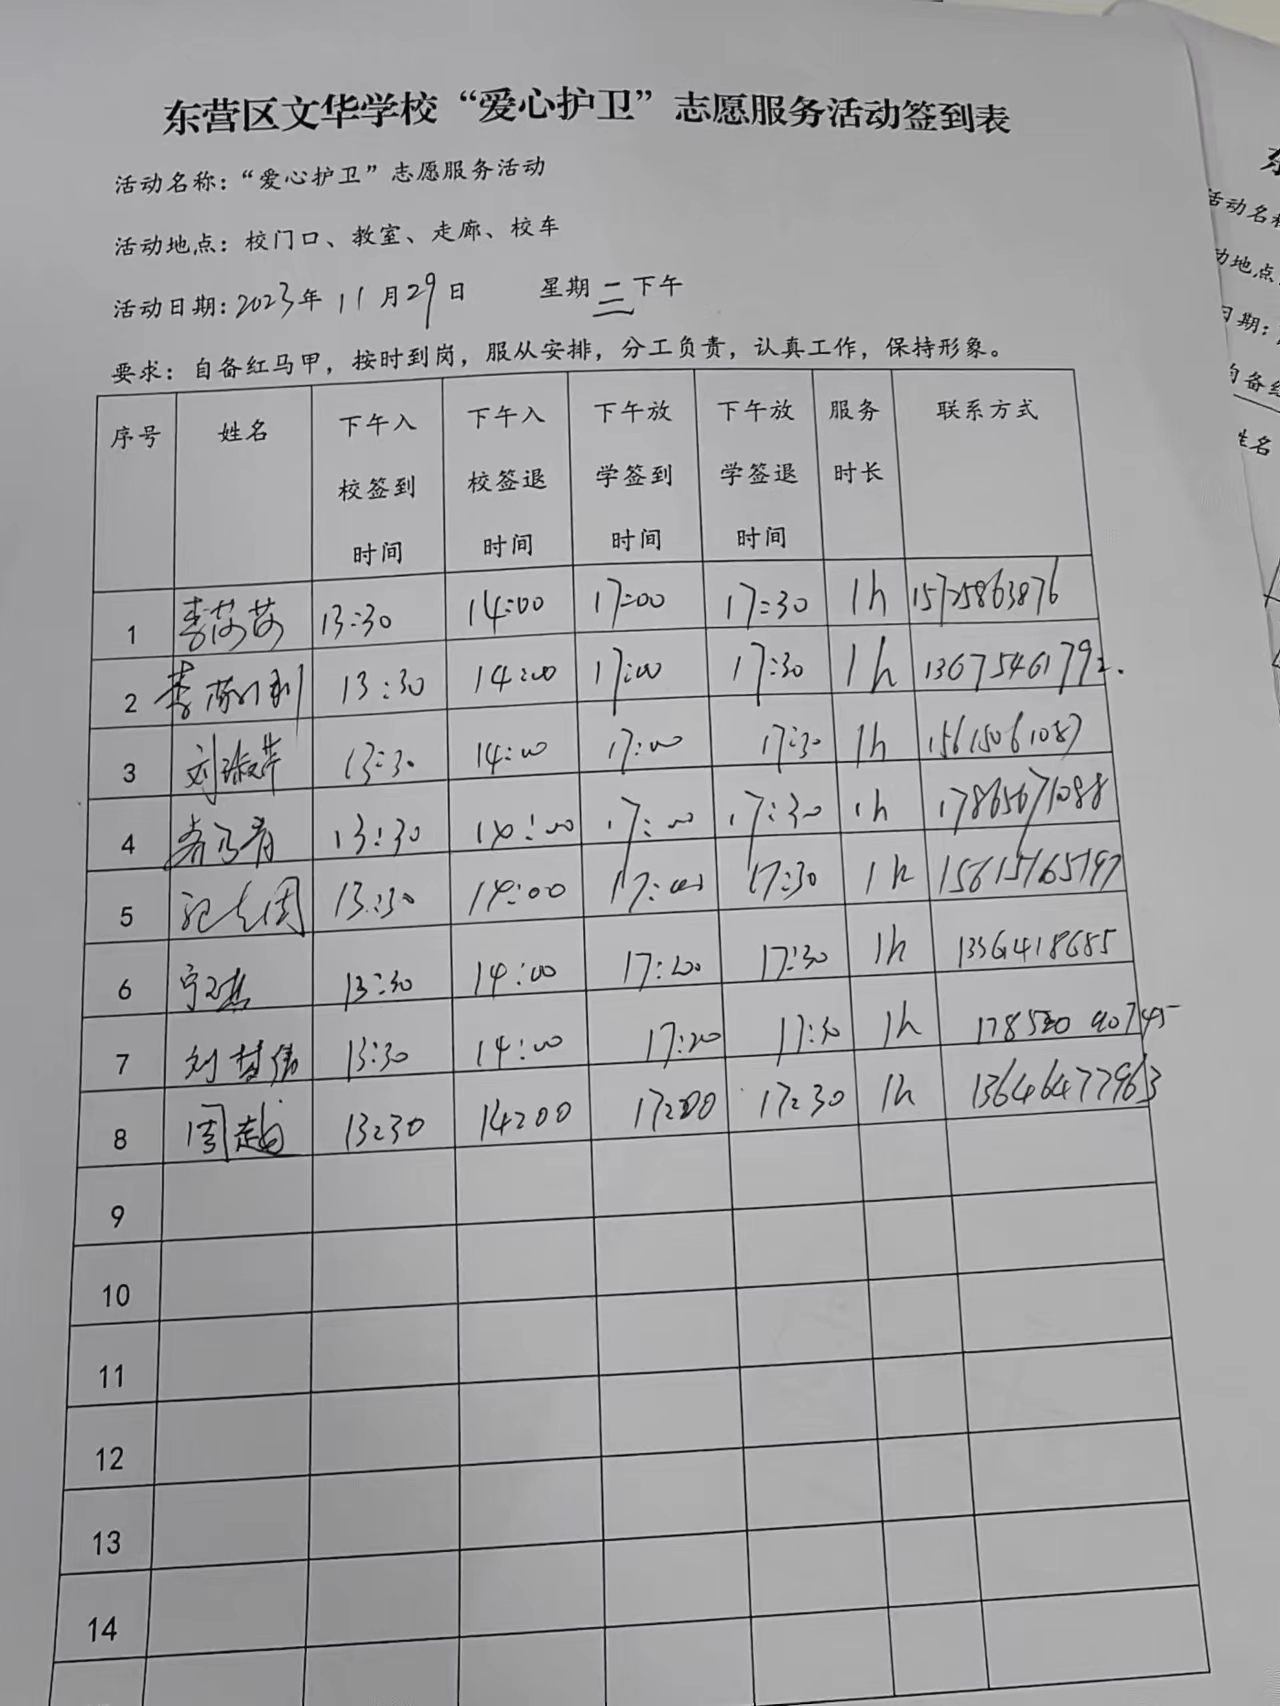 东营区文华学校“爱心护卫”志愿服务活动签到表
活动名称：“爱心护卫”志愿服务活动
活动地点：校门口、教室、走廊、校车
活动日期：2023年11月29日 星期三下午
要求：自备红马甲，按时到岗，服从安排，分工负责，认真工作，保持形象。
序号 姓名 下午入校签到时间 下午入校签退时间 下午放学签到时间 下午放学签退时间 服务时长 联系方式
1 李莎莎 13:30 14:00 17:00 17:30 1h 15725863876
2 13:30 14:00 17:00 17:30 1h 13675461792.
3 刘淑萍 13:30 14:00 17:00 17:30 1h 15615061087
4 13:30 14:00 17:00 17:30 1h 17865671088
5 13:30 14:00 17:00 17:30 1h 15615165197
6 13:30 14:00 17:00 17:30 1h 13561418685
7 刘梦倩 13:30 14:00 17:00 17:30 1h
8 周越 13:30 14:00 17:00 17:30 1h 13646477963
9
10
11
12
13
14